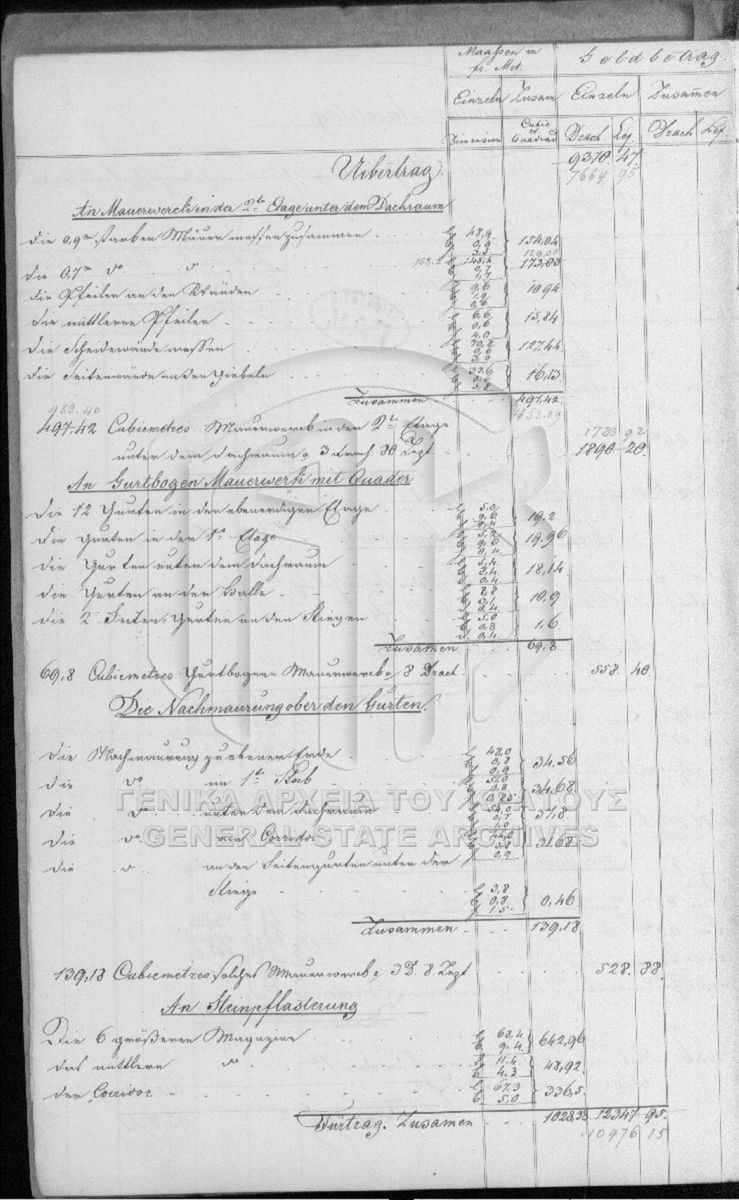 Maaßen in Geldbetrag.
fr. Met.
Einzeln Zusam Einzeln Zusammen
Dimension Cubic et Quadrad Drach Lep. Drach Lep.
Uibertrag. 9370. 47.
7664 95
An Mauerwerck in der 2te Etage unter dem Dachraum
die 0,9m starken Mauern messen zusammen 48,9 0,9 154,04
die 0,7m do do 0,7 173,03
die Pfeiler an den Wänden 9,6 1094
die mittleren Pfeiler 6,6 0,6 4,0 15,84
die Scheidewände messen 127,44
die Seitenwände an den Giebeln 33,6 16,13
Zusammen 497,42
453.40
497,42 Cubicmetres Mauerwerck in der 2te Etage 1780 92
unter dem Dachraum a 3 Drach. 80 Lept. 1890 20.
An Gurtbogen Mauerwerk mit Quader
Die 12 Gurten in der ebenerdigen Etage 5,0 9,6 0,4 19,2
die Gurten in der 1te Etage 5,2 9,6 0,4 19,96
die Gurten unter dem Dachraum 5,4 8,4 0,4 18,14
die Gurten an der Halle 8,8 3,1 0,4 10,9
die 2 Seiten Gurten an den Stiegen 5,0 0,8 0,4 1,6
Zusammen 69,8
69,8 Cubicmetres Gurtbogen Mauerwerck a 8 Drach. 558. 40
Die Nachmaurung ober den Gurten.
Die Nachmaurung zu ebener Erde 48,0 0,8 0,9 34,56
die do im 1te Stock 0,8 0,85 34,68
die do unter dem Dachraum 54,0 0,7 1,0 37,8
die do am Corridor 44,0 0,8 0,9 31,68
die do an den Seitengurten unter der
Stiege 3,8 0,8 1,5 0,46
Zusammen 139,18
139,18 Cubicmetres solches Mauerwerck a 3D 8 Lept 528. 88.
An Steinpflasterung
Die 6 größeren Magazine 68,4 9,4 642,96
das mittlere do 11,4 4,3 48,92
der Corridor 67,3 5,0 336,5
Fürtrag. Zusamen 1028,38 12347 95.
10476 15
ΓΕΝΙΚΑ ΑΡΧΕΙΑ ΤΟΥ ΚΡΑΤΟΥΣ
GENERAL STATE ARCHIVES